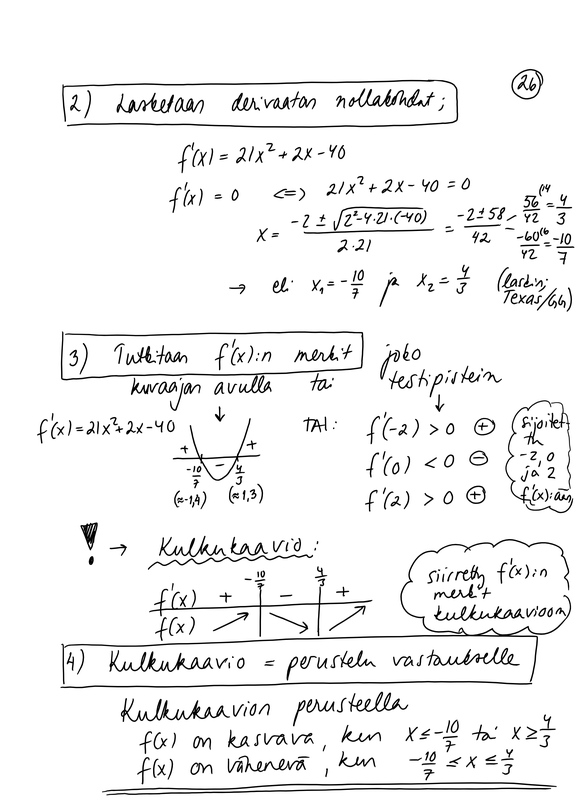 26
2) Lasketaan derivaatan nollakohdat;
f'(x) = 21x² + 2x - 40
f'(x) = 0 <=> 21x² + 2x - 40 = 0
x = (-2 ± √(2²-4·21·(-40))) / (2·21) = (-2 ± 58) / 42
56/42 (14 = 4/3
-60/42 (6 = -10/7
→ eli x₁ = -10/7 ja x₂ = 4/3 (laskin; Texas/
3) Tutkitaan f'(x):n merkit
kuvaajan avulla tai
joko
testipistein
f'(x) = 21x² + 2x - 40
+ - +
-10/7 4/3
(≈-1,4) (≈1,3)
TAI:
f'(-2) > 0 ⊕
f'(0) < 0 ⊖
f'(2) > 0 ⊕
sijoitet-
tu
-2, 0
ja 2
f'(x):ään
! → Kulkukaavio:
-10/7 4/3
f'(x) + - +
f(x) ↗ ↘ ↗
siirretty f'(x):n
merkit
kulkukaavioon
4) Kulkukaavio = perustelu vastaukselle
Kulkukaavion perusteella
f(x) on kasvava, kun x ≤ -10/7 tai x ≥ 4/3
f(x) on vähenevä, kun -10/7 ≤ x ≤ 4/3